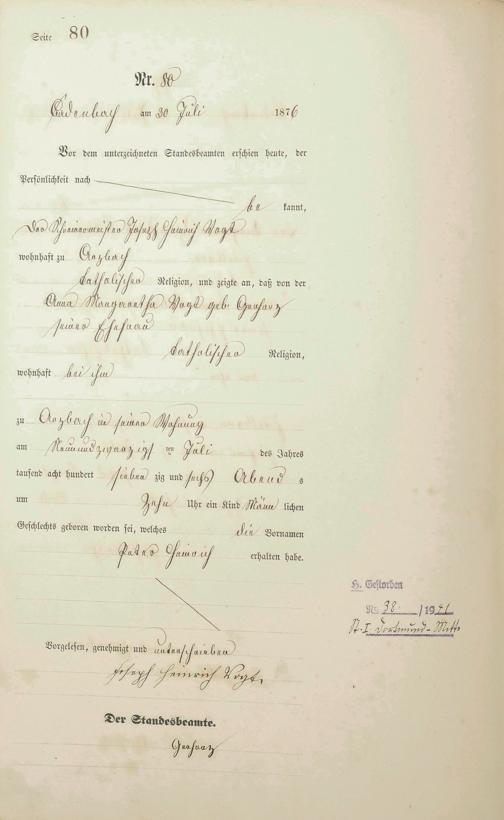 Seite 80
Nr. 80
Eadenbach am 30 Juli 1876
Vor dem unterzeichneten Standesbeamten erschien heute, der
Persönlichkeit nach
be kannt,
der Schreinermeister Joseph Heinrich Vogt
wohnhaft zu Arzbach
katholischer Religion, und zeigte an, daß von der
Anna Margaretha Vogt geb Gerharz
seiner Ehefrau
katholischer Religion,
wohnhaft bei ihm
zu Arzbach in seiner Wohnung
am Neunundzwanzigsten Juli des Jahres
tausend acht hundert sieben zig und sechs Abend s
um Zehn Uhr ein Kind Männ lichen
Geschlechts geboren worden sei, welches die Vornamen
Peter Heinrich erhalten habe.
Vorgelesen, genehmigt und unterschrieben
Joseph Heinrich Vogt.
Der Standesbeamte.
Gerharz
H. Gestorben
Nr. 38 /1941
St. I Dortmund-Mitte